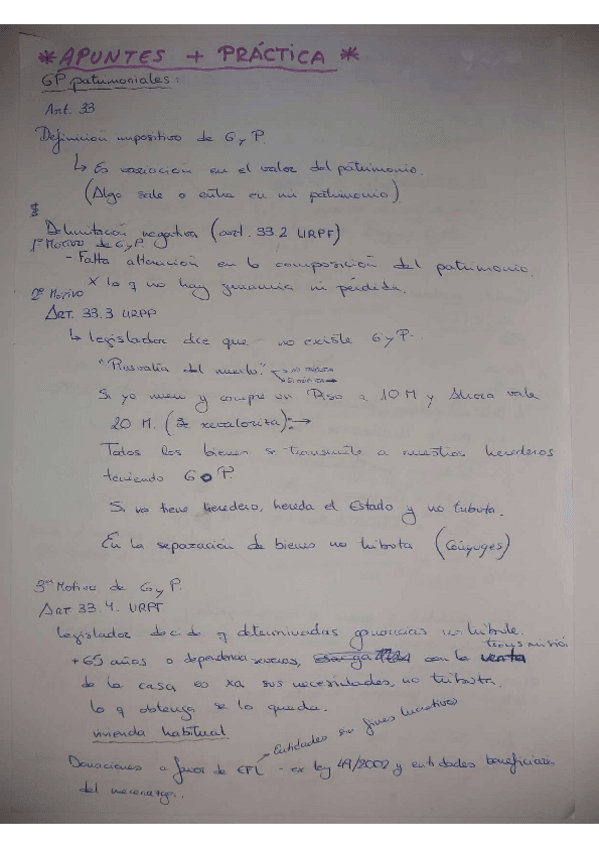 *APUNTES + PRÁCTICA*
GP patrimoniales:
Art. 33
Definición impositivo de G y P.
↳ Es variación en el valor del patrimonio.
(Algo sale o entra en mi patrimonio)
Delimitación negativa (art. 33.2 LIRPF)
1º Motivo de G y P.
- Falta alteración en la composición del patrimonio.
x lo q no hay ganancia ni pérdida.
2º Motivo
ART. 33.3 LIRPF
↳ legislador dice que no existe G y P.
"Plusvalía del muerto."
Si yo muero y compré un Piso a 10M y ahora vale
20 M. (Se revaloriza): →
Todos los bienes se transmite a nuestros herederos
teniendo G o P.
Si no tiene heredero, hereda el Estado y no tributa.
En la separación de bienes no tributa (Cónyuges)
3er Motivo de G y P.
ART 33.4. LIRPF
legislador decide q determinadas ganancias no tribute.
+65 años o dependencia severos, con la transmisión
de la casa es xa sus necesidades, no tributa.
lo q obtenga se lo queda.
vivienda habitual
Entidades sin fines lucrativos
Donaciones a favor de EFL - ex ley 49/2002 y entidades beneficiarias
del mecenazgo..